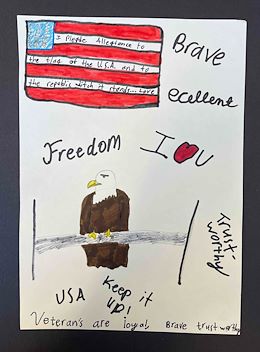 I Pledge Allegiance to
the flag of the U.S.A. and to
the republic witch it stands... Love
Brave
ecellent
Freedom
I ❤ U
Trust-
worthy
USA
Keep it
up!
Veteran's are loyal, Brave trustworthy